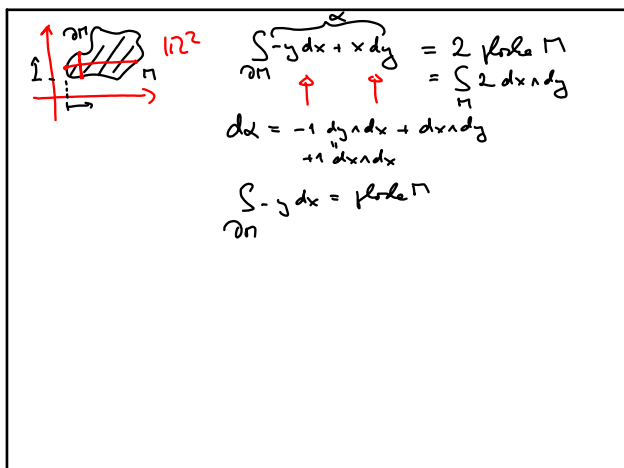 ∂M ℝ²
1
M
α
∫_{∂M} -y dx + x dy = 2 ploše M
= ∫_M 2 dx∧dy
dα = -1 dy∧dx + dx∧dy
"
+1 dx∧dx
∫_{∂M} -y dx = ploše M